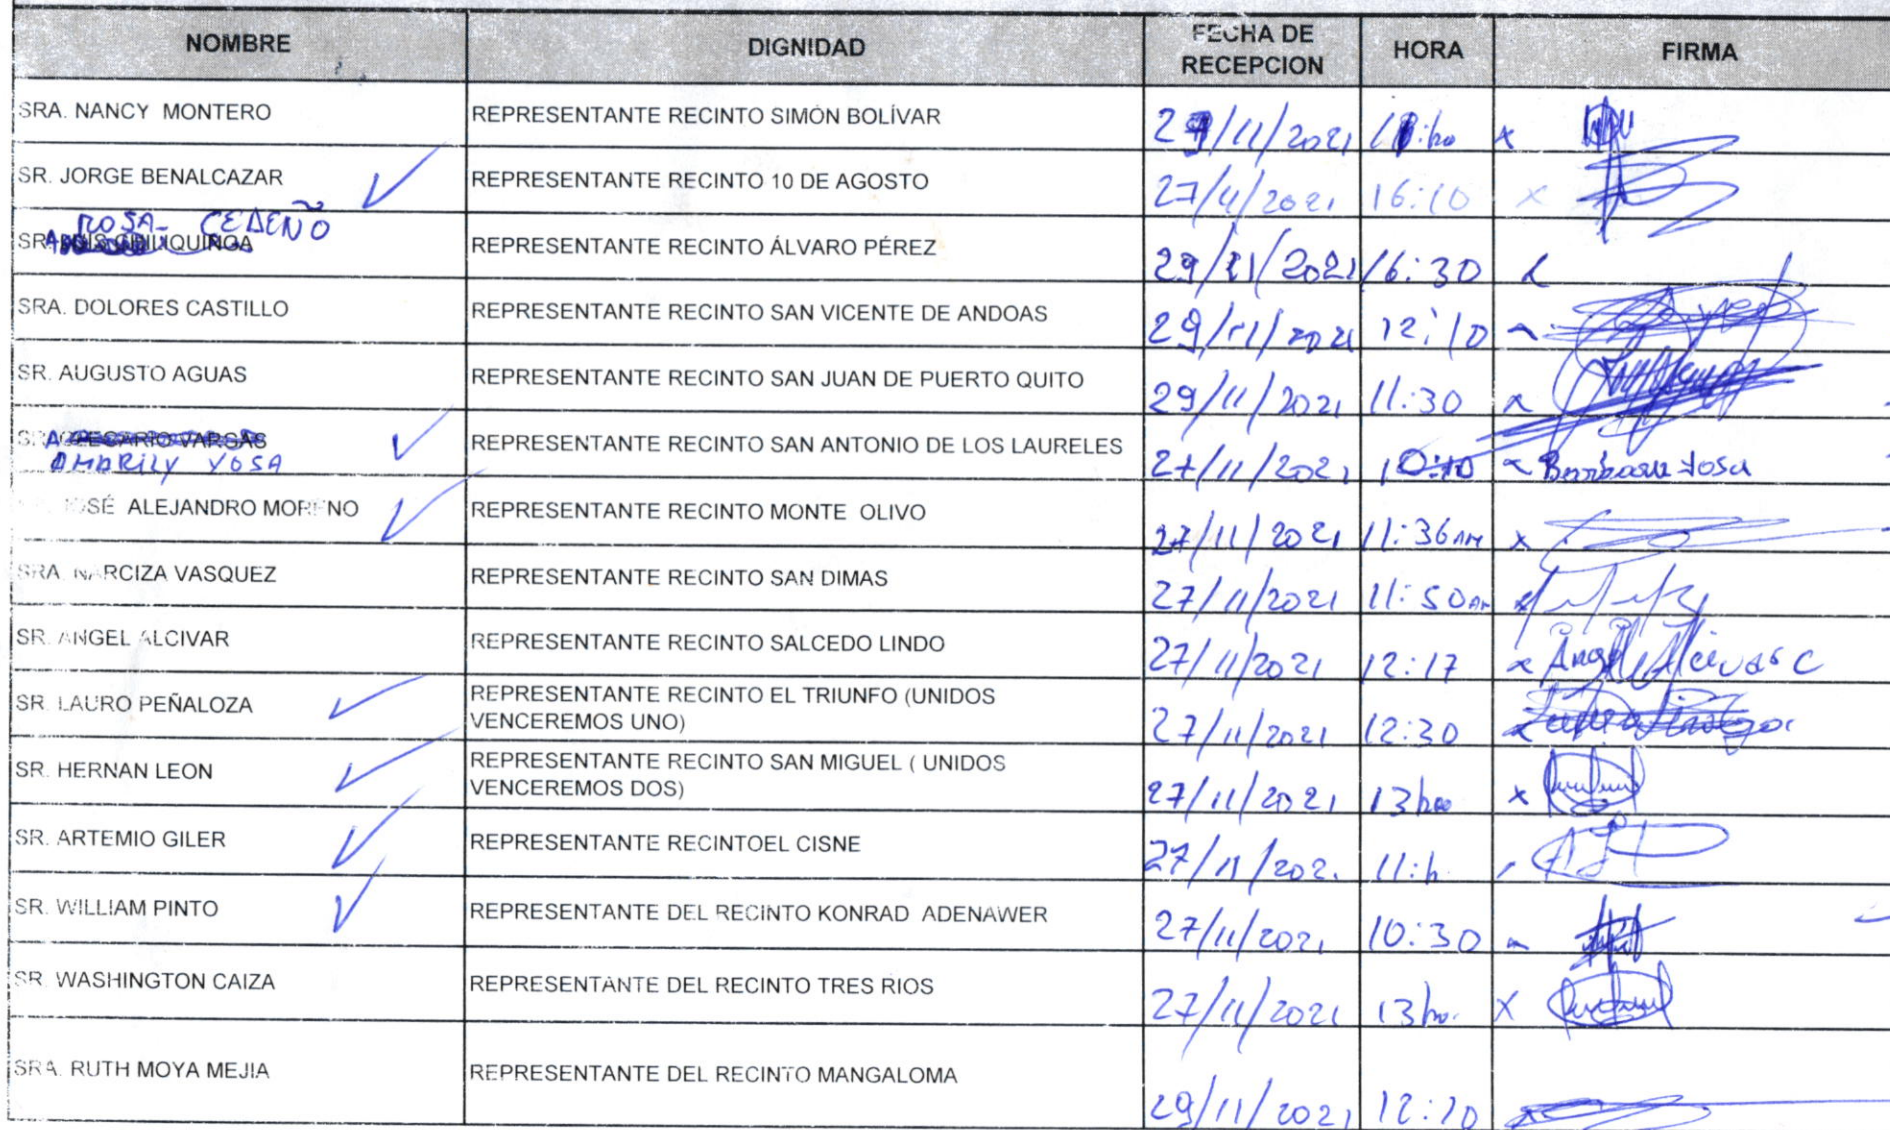 NOMBRE DIGNIDAD FECHA DE RECEPCION HORA FIRMA
SRA. NANCY MONTERO REPRESENTANTE RECINTO SIMÓN BOLÍVAR /11/2021 x
SR. JORGE BENALCAZAR REPRESENTANTE RECINTO 10 DE AGOSTO 27/11/2021 16:10 x
ROSA CEDEÑO
REPRESENTANTE RECINTO ÁLVARO PÉREZ 29/11/2021 16:30
SRA. DOLORES CASTILLO REPRESENTANTE RECINTO SAN VICENTE DE ANDOAS 29/11/2021 12:10
SR. AUGUSTO AGUAS REPRESENTANTE RECINTO SAN JUAN DE PUERTO QUITO 29/11/2021 11:30
VARGAS REPRESENTANTE RECINTO SAN ANTONIO DE LOS LAURELES
AMARILY YOSA 27/11/2021 10:10
JOSÉ ALEJANDRO MORENO REPRESENTANTE RECINTO MONTE OLIVO 27/11/2021 11:36 AM x
SRA. NARCIZA VASQUEZ REPRESENTANTE RECINTO SAN DIMAS 27/11/2021 11:50 AM x
SR. ANGEL ALCIVAR REPRESENTANTE RECINTO SALCEDO LINDO 27/11/2021 12:17 Angel Alcivar C
SR. LAURO PEÑALOZA REPRESENTANTE RECINTO EL TRIUNFO (UNIDOS
VENCEREMOS UNO) 27/11/2021 12:30
SR. HERNAN LEON REPRESENTANTE RECINTO SAN MIGUEL ( UNIDOS
VENCEREMOS DOS) 27/11/2021 13hoo x
SR. ARTEMIO GILER REPRESENTANTE RECINTOEL CISNE 27/11/202. 11:h
SR. WILLIAM PINTO REPRESENTANTE DEL RECINTO KONRAD ADENAWER 27/11/2021 10:30
SR. WASHINGTON CAIZA REPRESENTANTE DEL RECINTO TRES RIOS 27/11/2021 13ho. x
SRA. RUTH MOYA MEJIA REPRESENTANTE DEL RECINTO MANGALOMA 29/11/2021